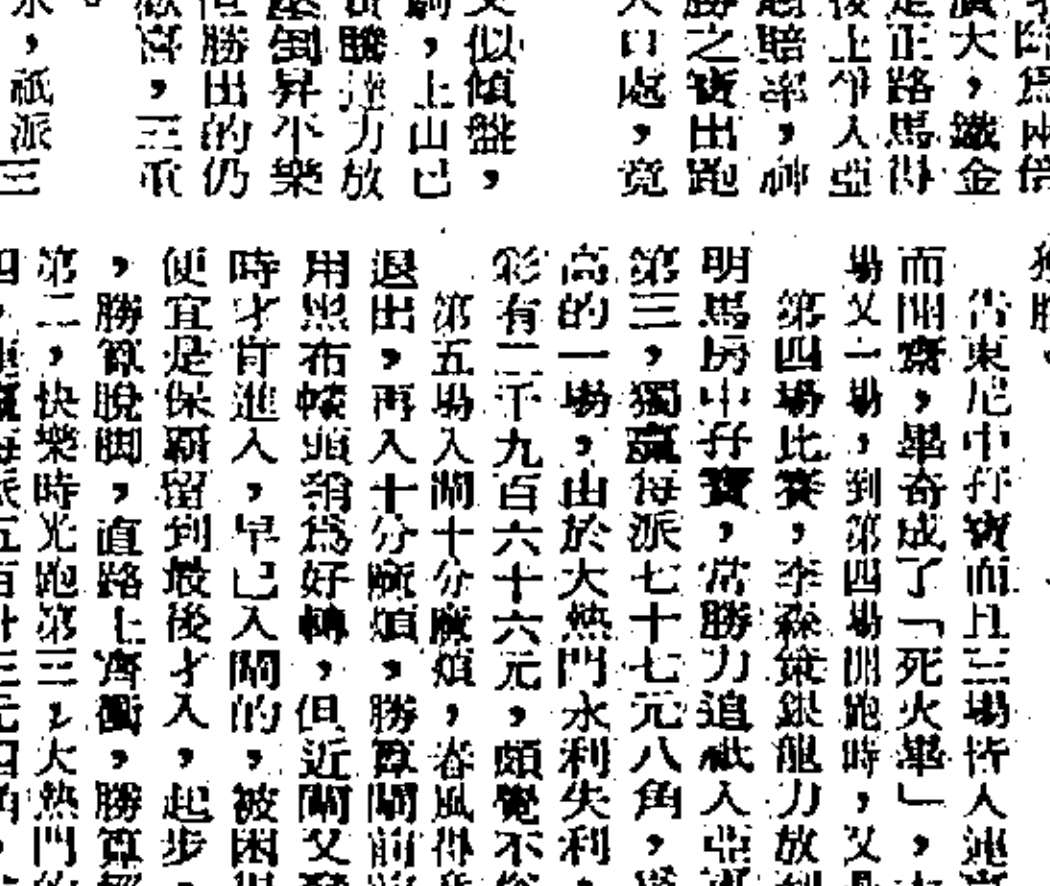 爲兩倍
廣大，鐵金
是正路馬得
後上爭入亞
賠率，神
勝之寶出跑
入口處，竟
又似傾盤，
，上山已
力放
座倒昇平樂
但勝出的仍
歡喜，三重
，祇派三
當東尼中孖寶而且三場杵人連
而開齋，畢奇成了「死火畢」，
場又一場，到第四場開跑時，又
第四場比賽，李森策銀龍力放
明馬房中孖寶，常勝力追祇入亞
第三，獨贏每派七十七元八角，
高的一場，由於大熱門永利失利
彩有二千九百六十六元，頗覺不
第五場入閘十分麻煩，春風得
退出，再入十分麻煩，勝算閘前
用黑布幪頭稍爲好轉，但近閘又
時才肯進入，早已入閘的，被困
便宜是保霸留到最後才入，起步
，勝算脫脚，直路上齊衝，勝算
第二，快樂時光跑第三，大熱門的